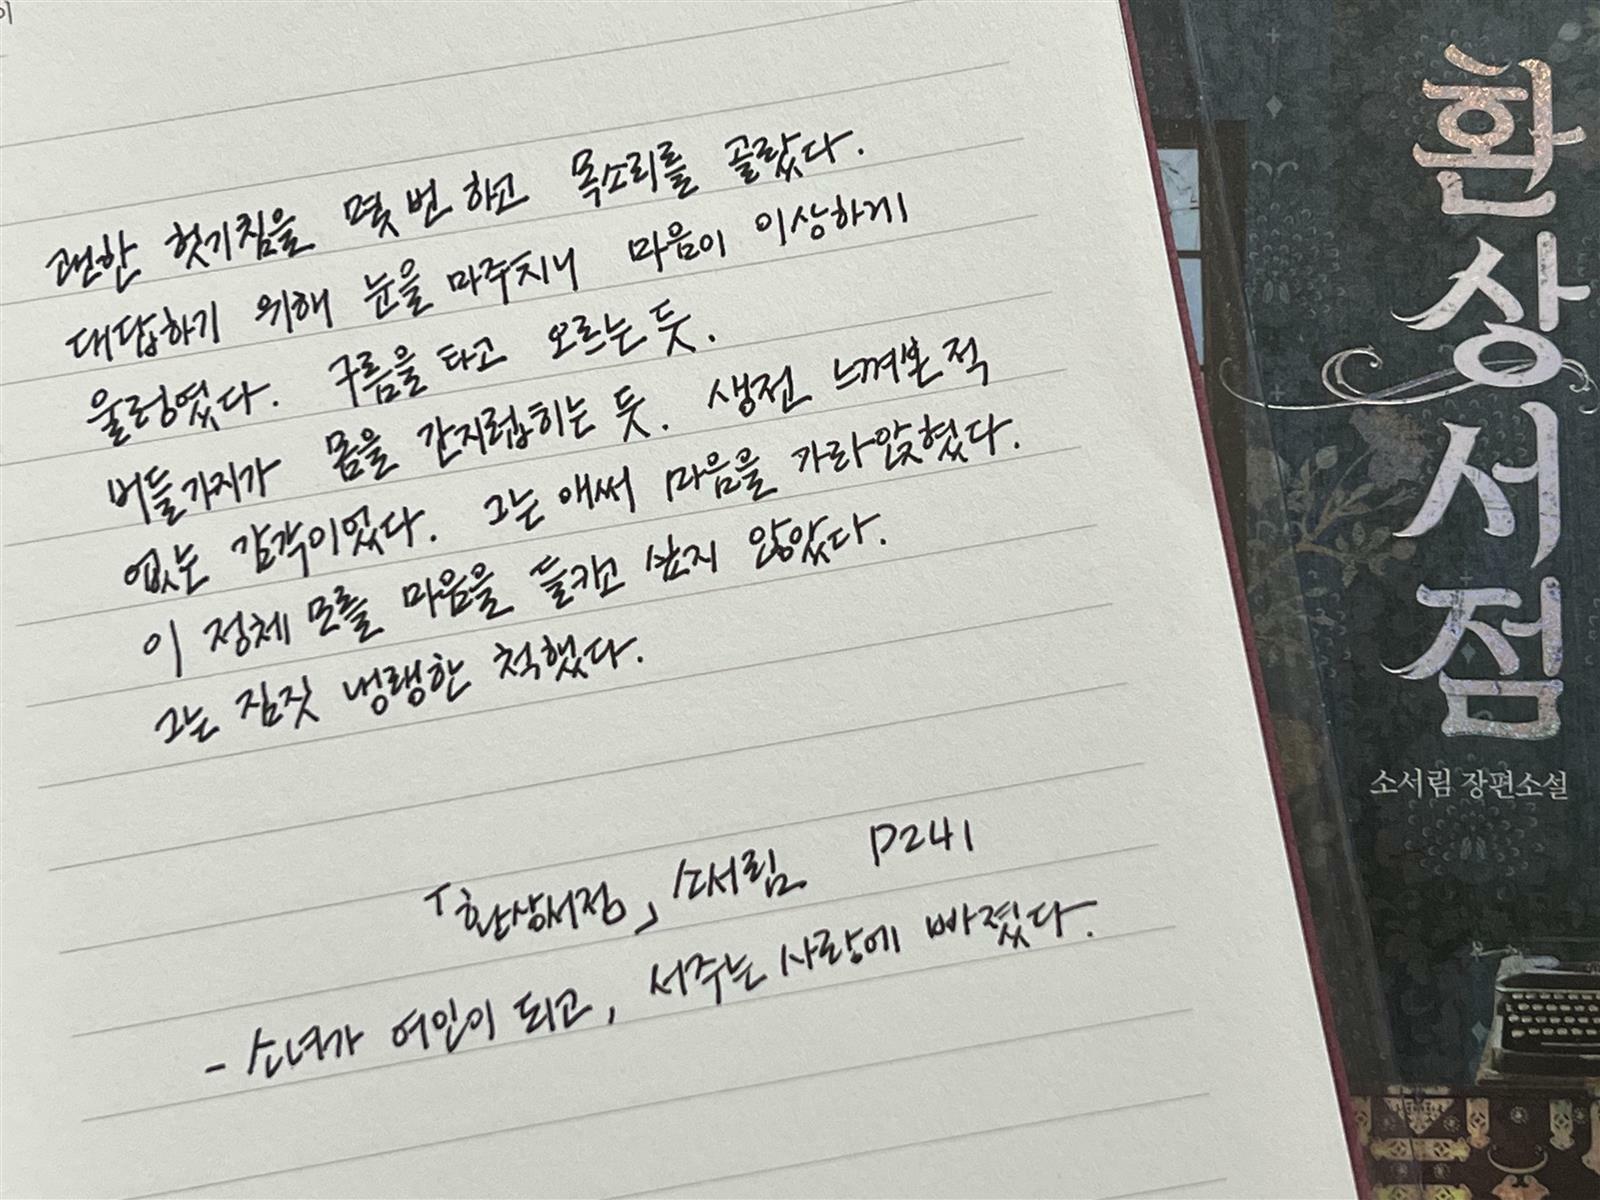 괜한 헛기침을 몇 번 하고 목소리를 골랐다.
대답하기 위해 눈을 마주치니 마음이 이상하게
울렁였다. 구름을 타고 오르는 듯.
버들가지가 몸을 간지럽히는 듯. 생전 느껴본 적
없는 감각이었다. 그는 애써 마음을 가라앉혔다.
이 정체 모를 마음을 들키고 싶지 않았다.
그는 짐짓 냉랭한 척했다.
「환상서점」 소서림 P241
- 소녀가 여인이 되고, 서주는 사랑에 빠졌다.
환상서점
소서림 장편소설